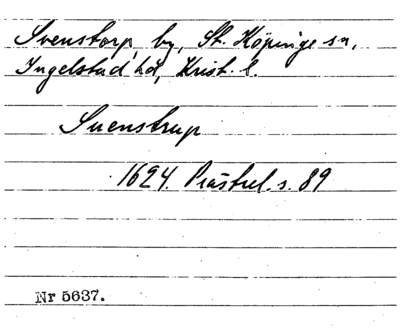 Svenstorp, by, St. Köpinge sn,
Ingelstad hd, Krist. l.
Suenstrup
1624. Prästrel. s. 89
Nr 5637.